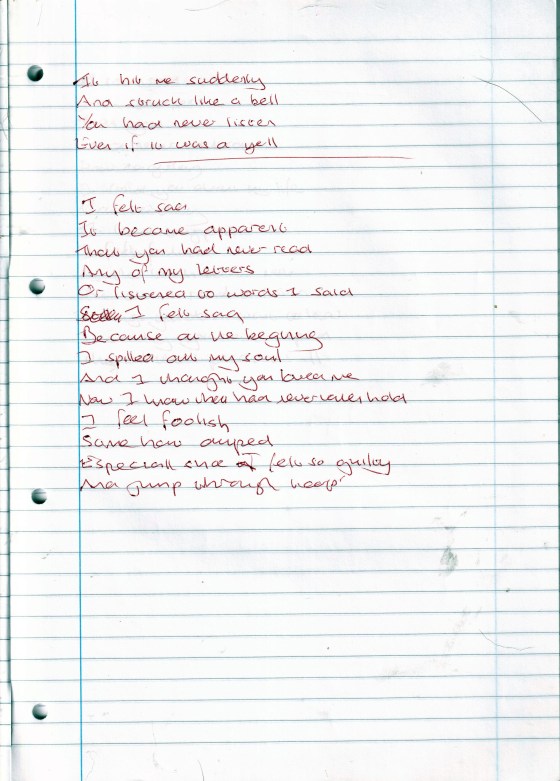 It hit me suddenly
And struck like a bell
You had never listen
Even if it was a yell
I felt sad
It became apparent
That you had never read
Any of my letters
Or listened to words I said
I felt sad
Because at the begining
I spilled out my soul
And I thought you loved me
Now I know that had never
I feel foolish
Some how duped
Especiall since I felt so guiltey
And jump through hoops